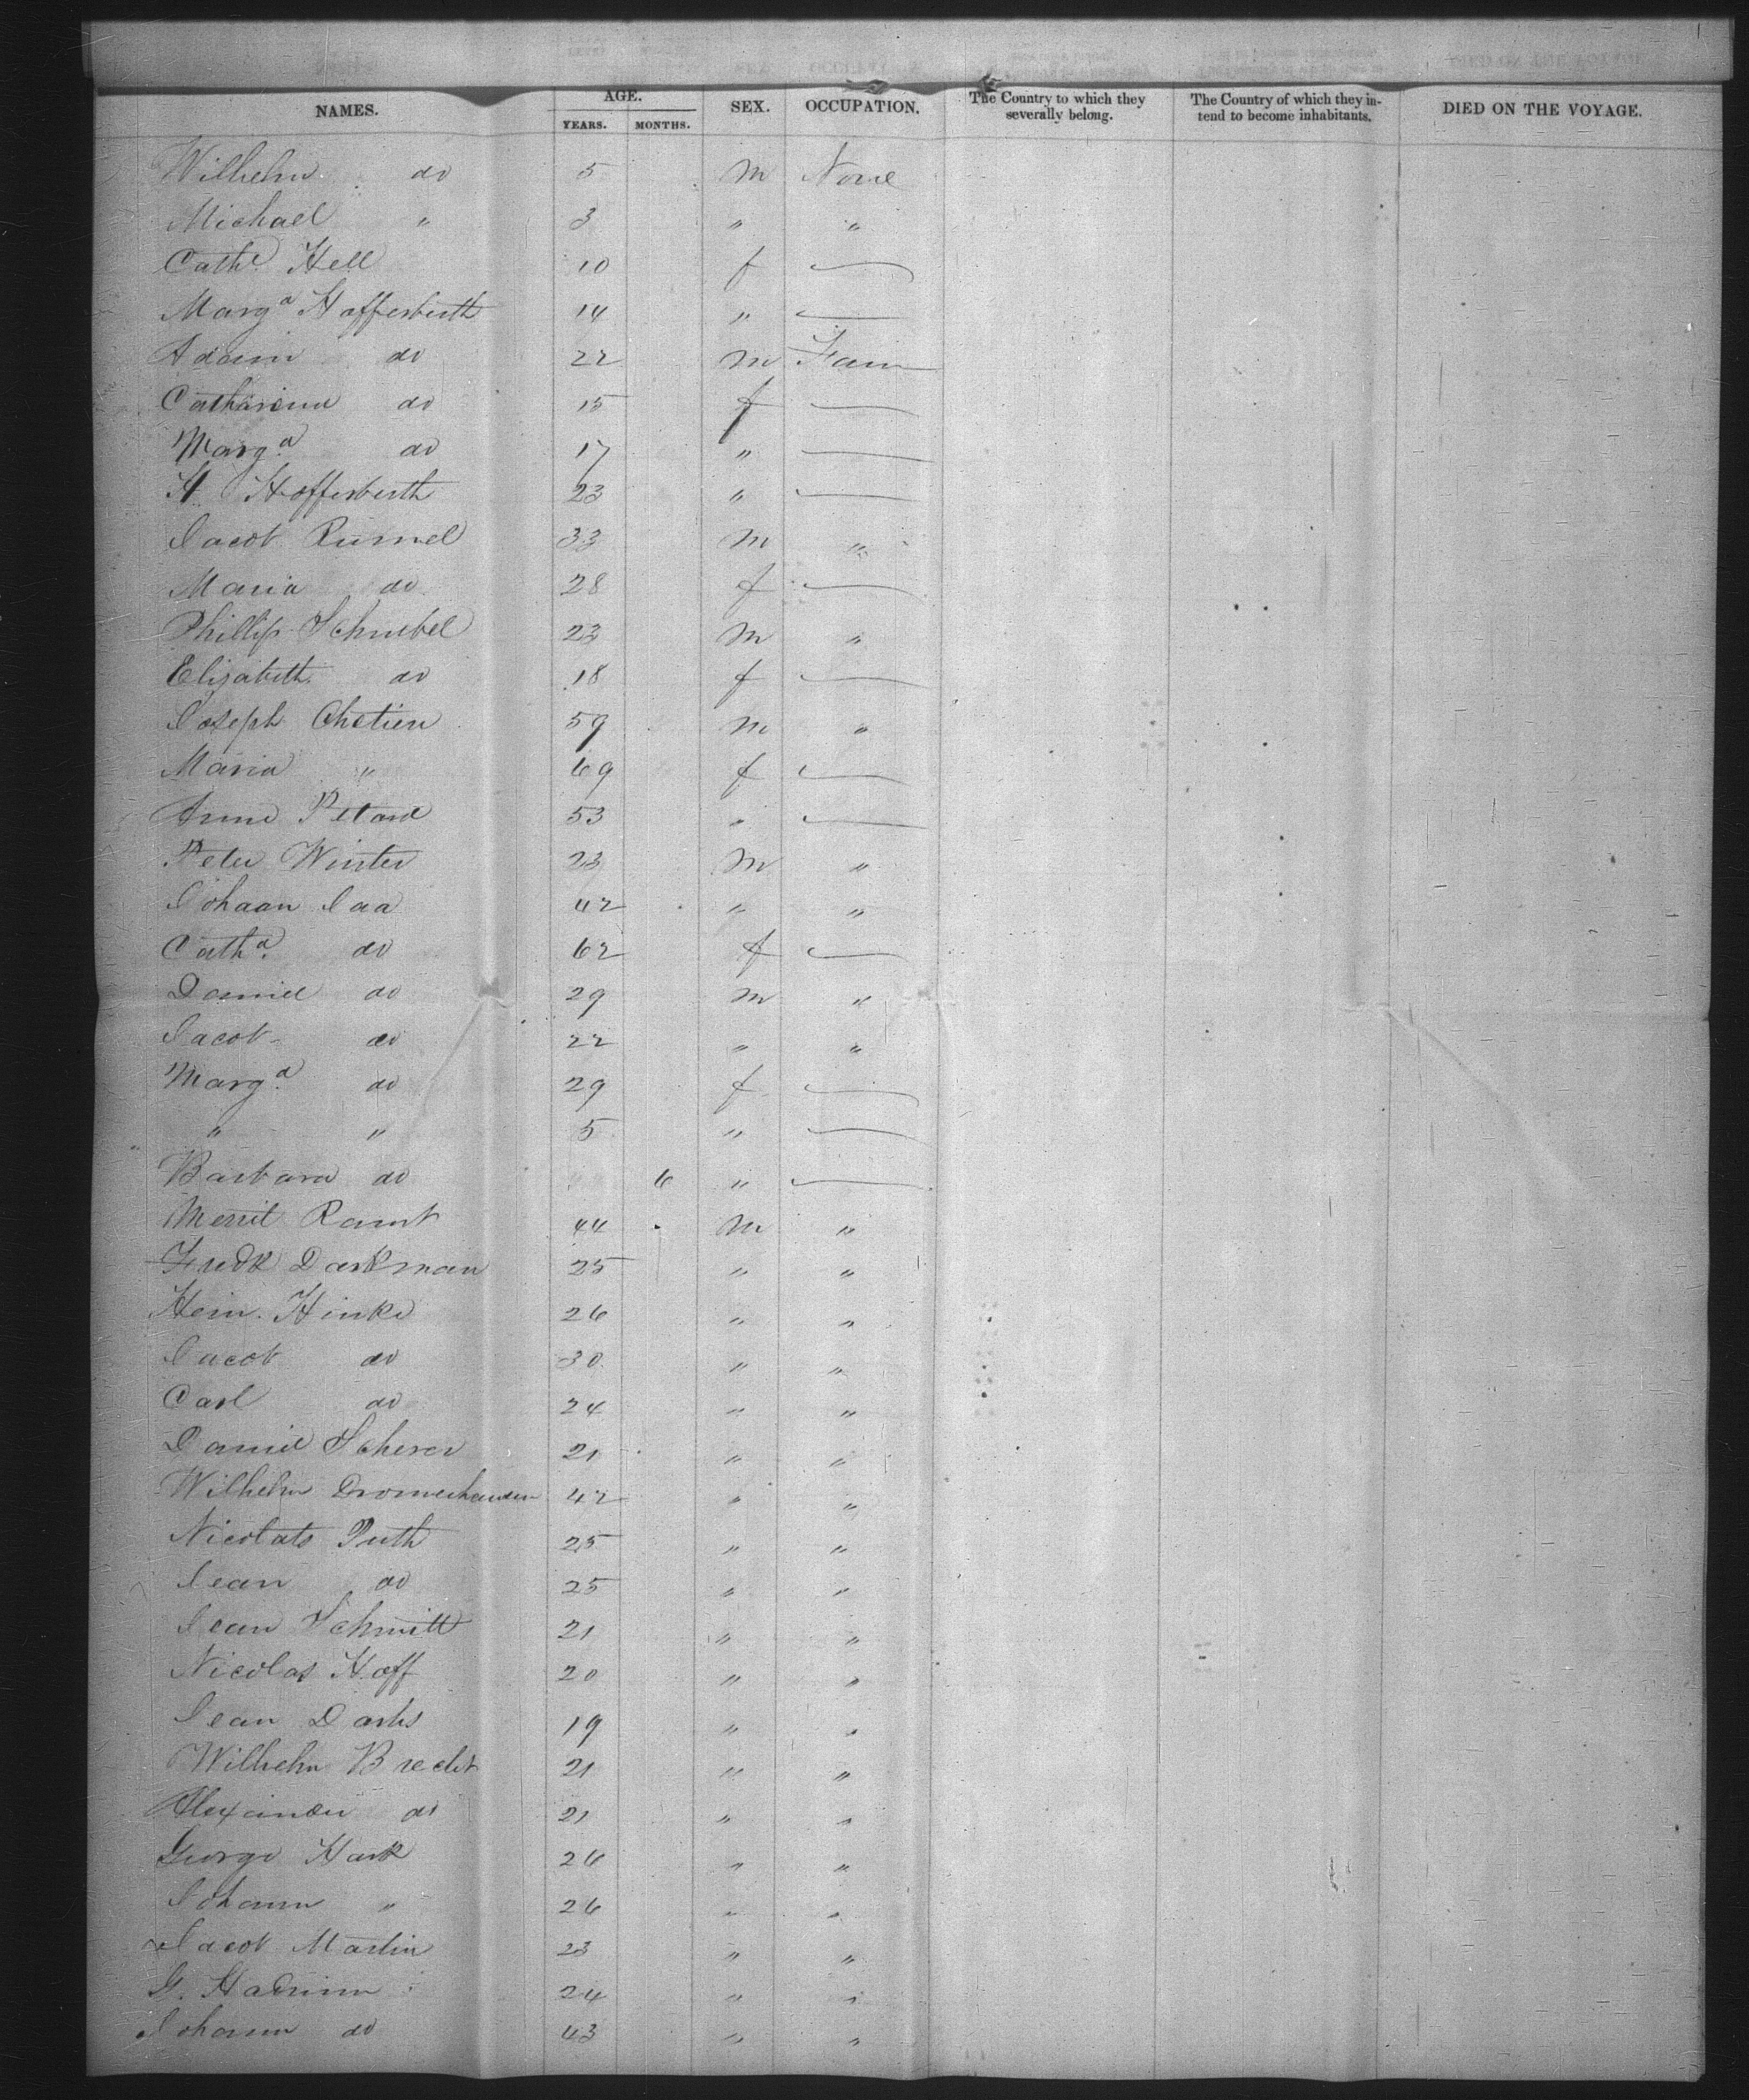 NAMES. AGE. YEARS. MONTHS. SEX. OCCUPATION. The Country to which they severally belong. The Country of which they intend to become inhabitants. DIED ON THE VOYAGE.
Wilhelm do 5 m None
Michael " 3 " "
Cath Hell 10 f —
Marga Hofferberth 14 " —
Adam do 22 m Farm
Catharina do 15 f —
Marga do 17 " —
H Hofferberth 23 " —
Jacob Rumel 33 m "
Maria do 28 f —
Phillip 23 m "
Elizabeth do 18 f —
Joseph Chetien 59 m "
Maria " 69 f —
Anna 53 " —
Peter Winter 23 m "
Johaan Jaa 42 " "
Catha do 62 f —
Daniel do 29 m "
Jacob do 22 " "
Marga do 29 f —
" " 5 " —
Barbara do 6 " —
44 m "
Fredk Darkman 25 " "
Hein. Hinke 26 " "
Jacob do 30 " "
Carl do 24 " "
Daniel Scherer 21 " "
Wilhelm 42 " "
Puth 25 " "
Jean do 25 " "
Jean Schmitt 21 " "
Nicolas Hoff 20 " "
Jean 19 " "
Wilhelm Brecht 21 " "
Alexander do 21 " "
George Hark 26 " "
Johann " 26 " "
Jacob Martin 23 " "
G. 24 " "
Johann do 43 " "